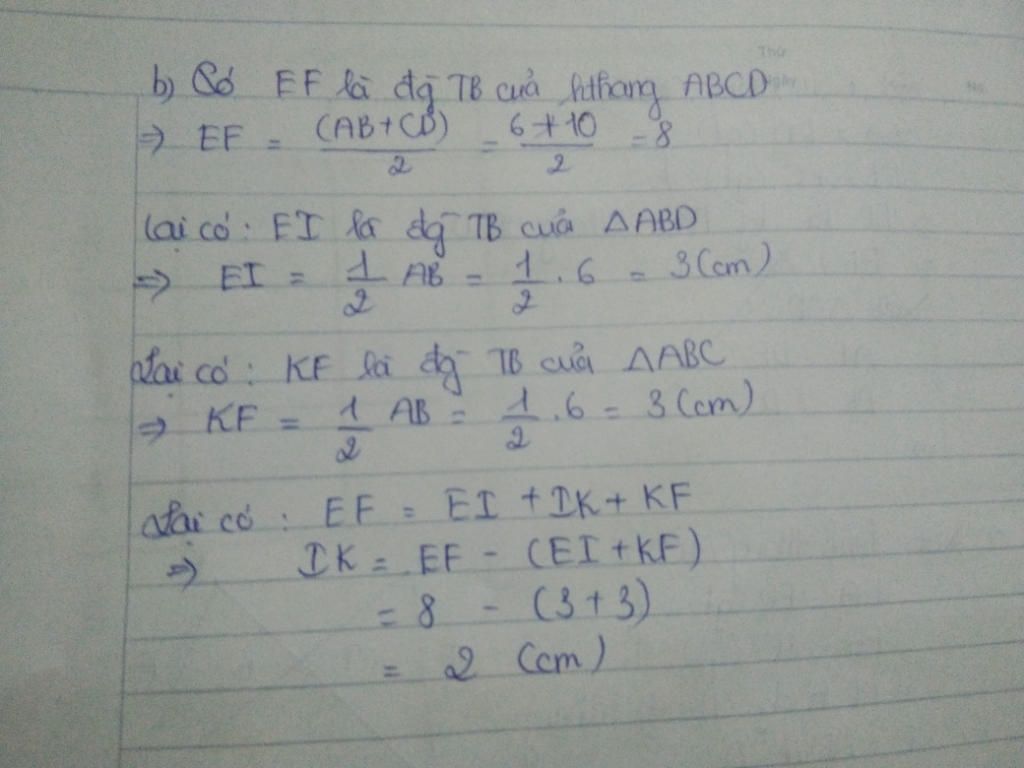 Thứ
b) Có EF là đg TB của hthang ABCD
⇒ EF = (AB+CD)/2 = 6+10/2 = 8
Lại có: EI là đg TB của △ABD
⇒ EI = 1/2 AB = 1/2 . 6 = 3(cm)
Lại có: KF là đg TB của △ABC
⇒ KF = 1/2 AB = 1/2 . 6 = 3(cm)
Lại có: EF = EI + IK + KF
⇒ IK = EF - (EI+KF)
= 8 - (3+3)
= 2 (cm)